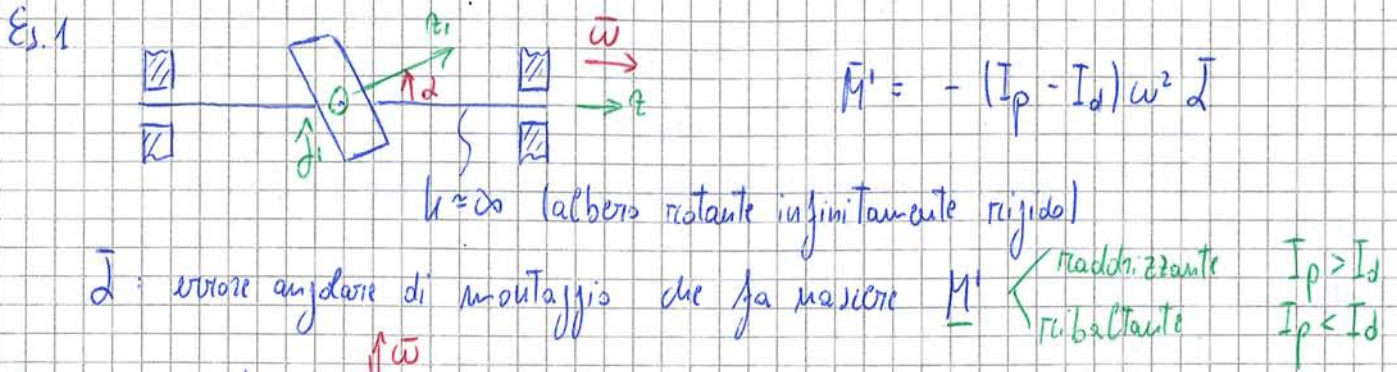 Es. 1
z₁
ω̄
α
z
M̄' = - (I_p - I_d) ω² ᾱ
O
j₁
k ≈ ∞ (albero rotante infinitamente rigido)
ᾱ : errore angolare di montaggio che fa nascere M'
raddrizzante I_p > I_d
ribaltante I_p < I_d
ω̄